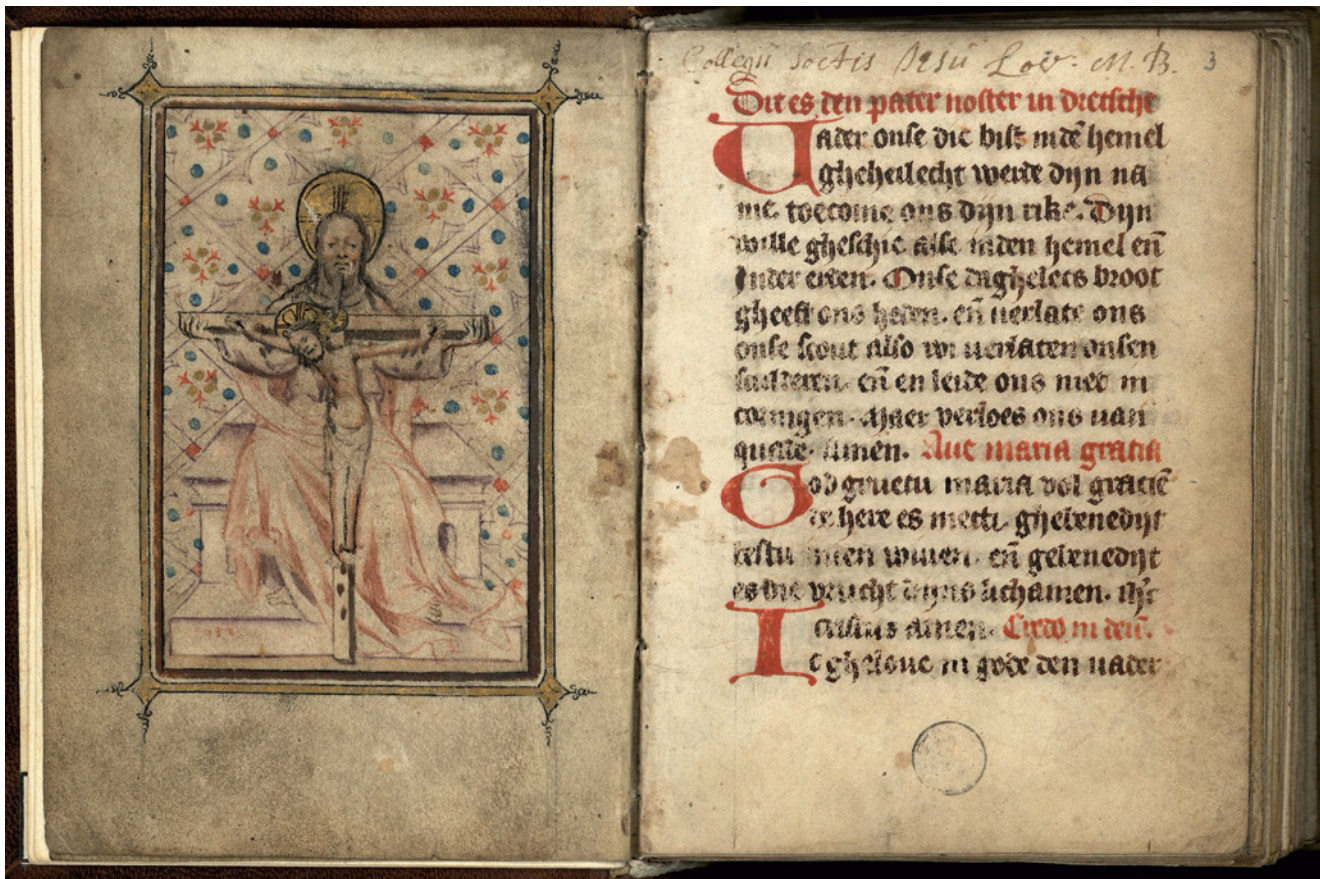 Collegii Soctis Jesu Lov: M. B. 3
Dit es den pater noster in dietsche
Uader onse die bist indē hemel
gheheilecht werde dijn na
me. toecome ons dijn rike. Dijn
wille gheschie alse inden hemel en̄
Inder erden. Onse daghelecs broot
gheeft ons heden. en̄ uerlate ons
onse scout also wi uerlaten onsen
sculderen. en̄ en leide ons niet in
coringen. Maer verloes ons uan
quade. Amen. Aue maria gratia
God gruetu maria vol graciē
de here es metti. ghebenedijt
bestu inen wiuen. en̄ gebenedijt
es die vrucht dijns lichamen. ihc
cristus amen. Credo in deū.
Ic gheloue in gode den uader